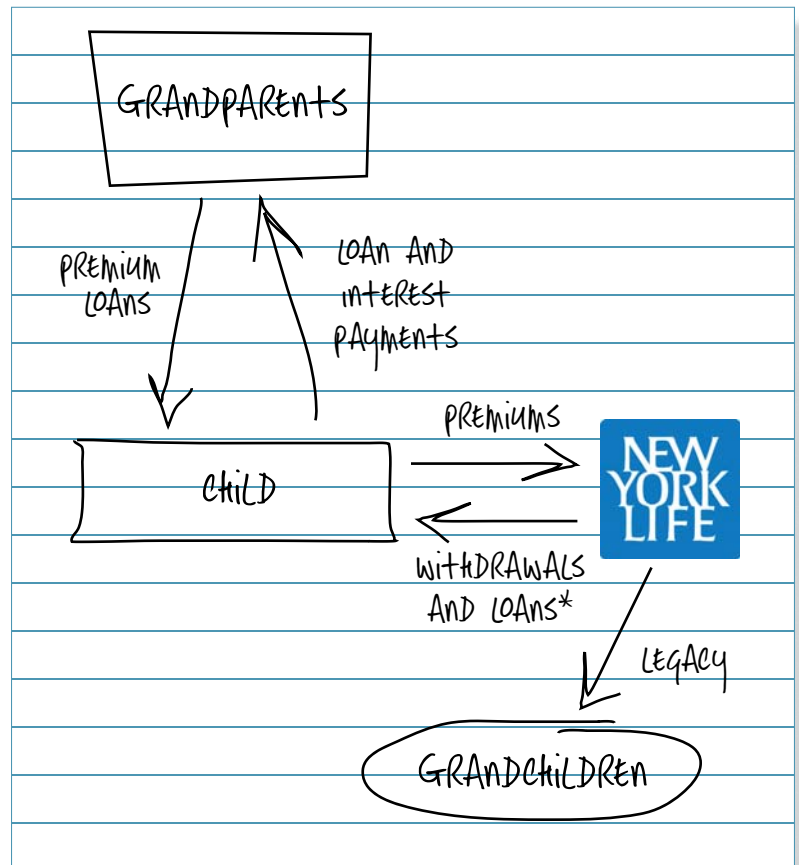 GRANDPARENTS
PREMIUM
LOANS
LOAN AND
INTEREST
PAYMENTS
PREMIUMS
CHILD
NEW
YORK
LIFE
WITHDRAWALS
AND LOANS*
LEGACY
GRANDCHILDREN